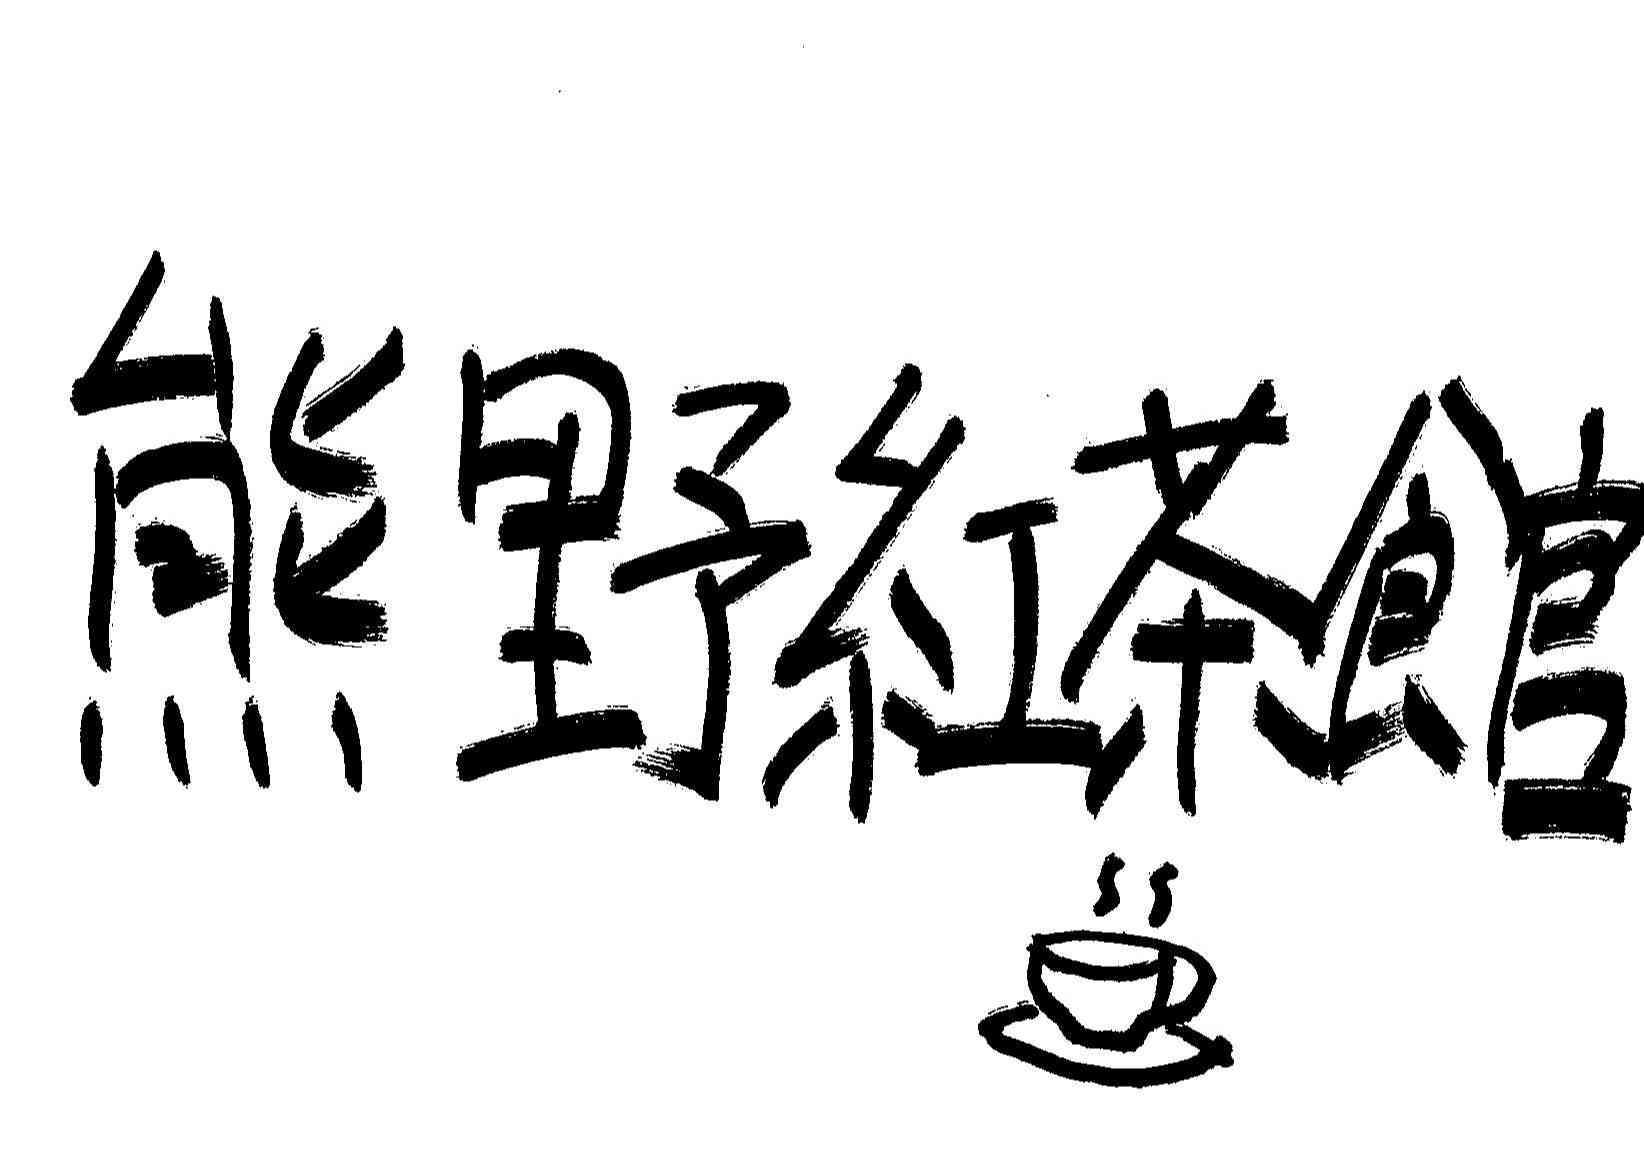 熊野紅茶館